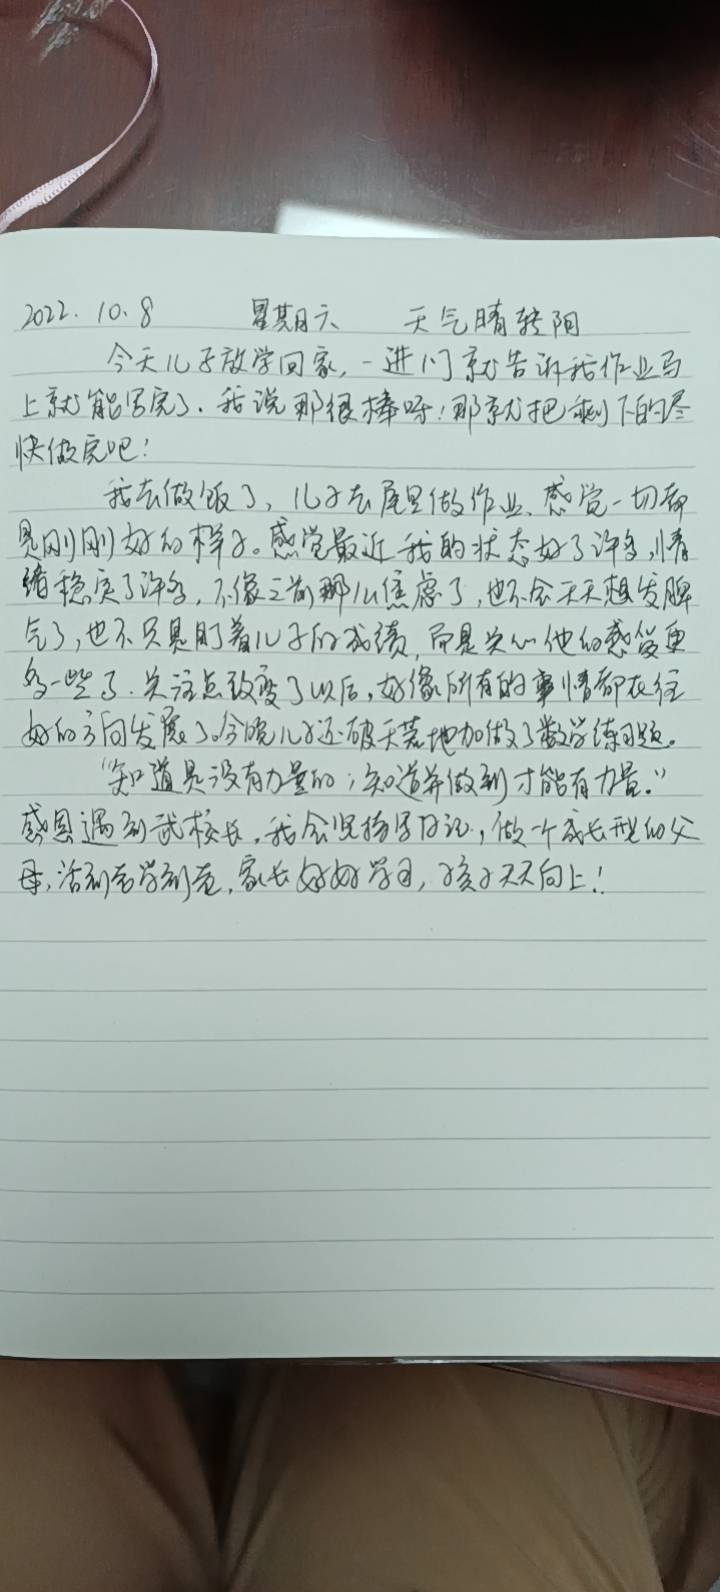 2022.10.8 星期六 天气晴转阴
今天儿子放学回家,一进门就告诉我作业马
上就能写完了.我说那很棒呀!那就把剩下的尽
快做完吧!
我去做饭了,儿子去屋里做作业、感觉一切都
是刚刚好的样子。感觉最近我的状态好了许多,情
绪稳定了许多,不像之前那么焦虑了,也不会天天想发脾
气了,也不只是盯着儿子的成绩,而是关心他的感受更
多一些了.关注点改变了以后,好像所有的事情都在往
好的方向发展了。今晚儿子还破天荒地加做了数学练习题。
“知道是没有力量的;知道并做到才能有力量.”
感恩遇到武校长,我会坚持写日记,做一个成长型的父
母,活到老学到老,家长好好学习,孩子天天向上!